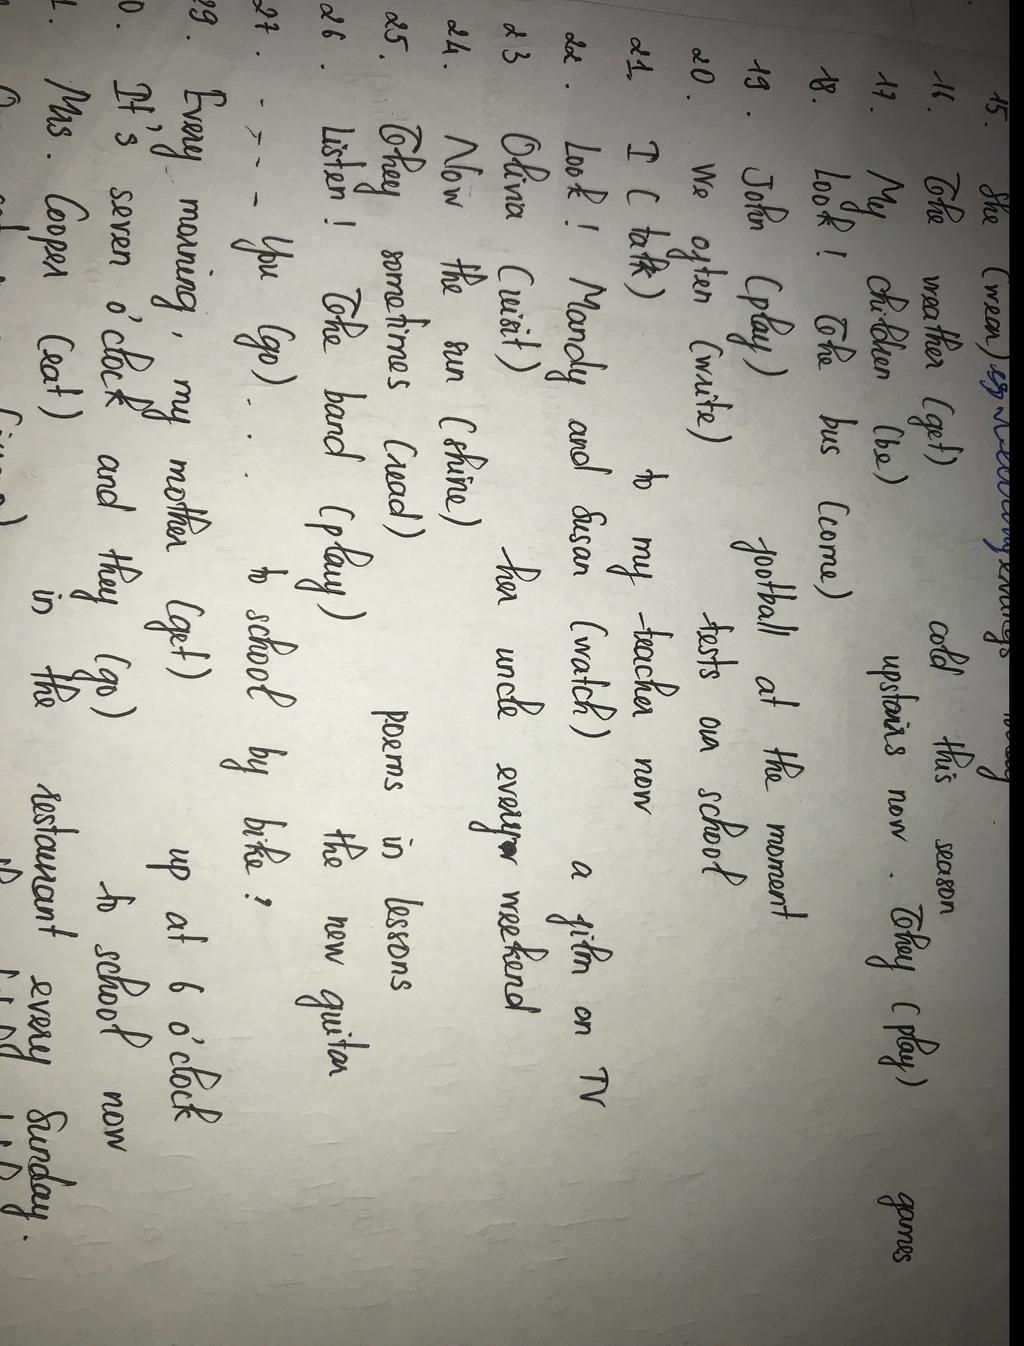 15. She (wear) earrings today
16. The weather (get) cold this season
17. My children (be) upstairs now. They (play) games
18. Look! The bus (come)
19. John (play) football at the moment
20. We often (write) tests at school
21. I (talk) to my teacher now
22. Look! Mandy and Susan (watch) a film on TV
23 Olivia (visit) her uncle every weekend
24. Now the sun (shine)
25. They sometimes (read) poems in lessons
26. Listen! The band (play) the new guitar
27. .--- You (go)... to school by bike?
29. Every morning, my mother (get) up at 6 o'clock
0. It's seven o'clock and they (go) to school now
1. Mrs. Cooper (eat) in the restaurant every Sunday.